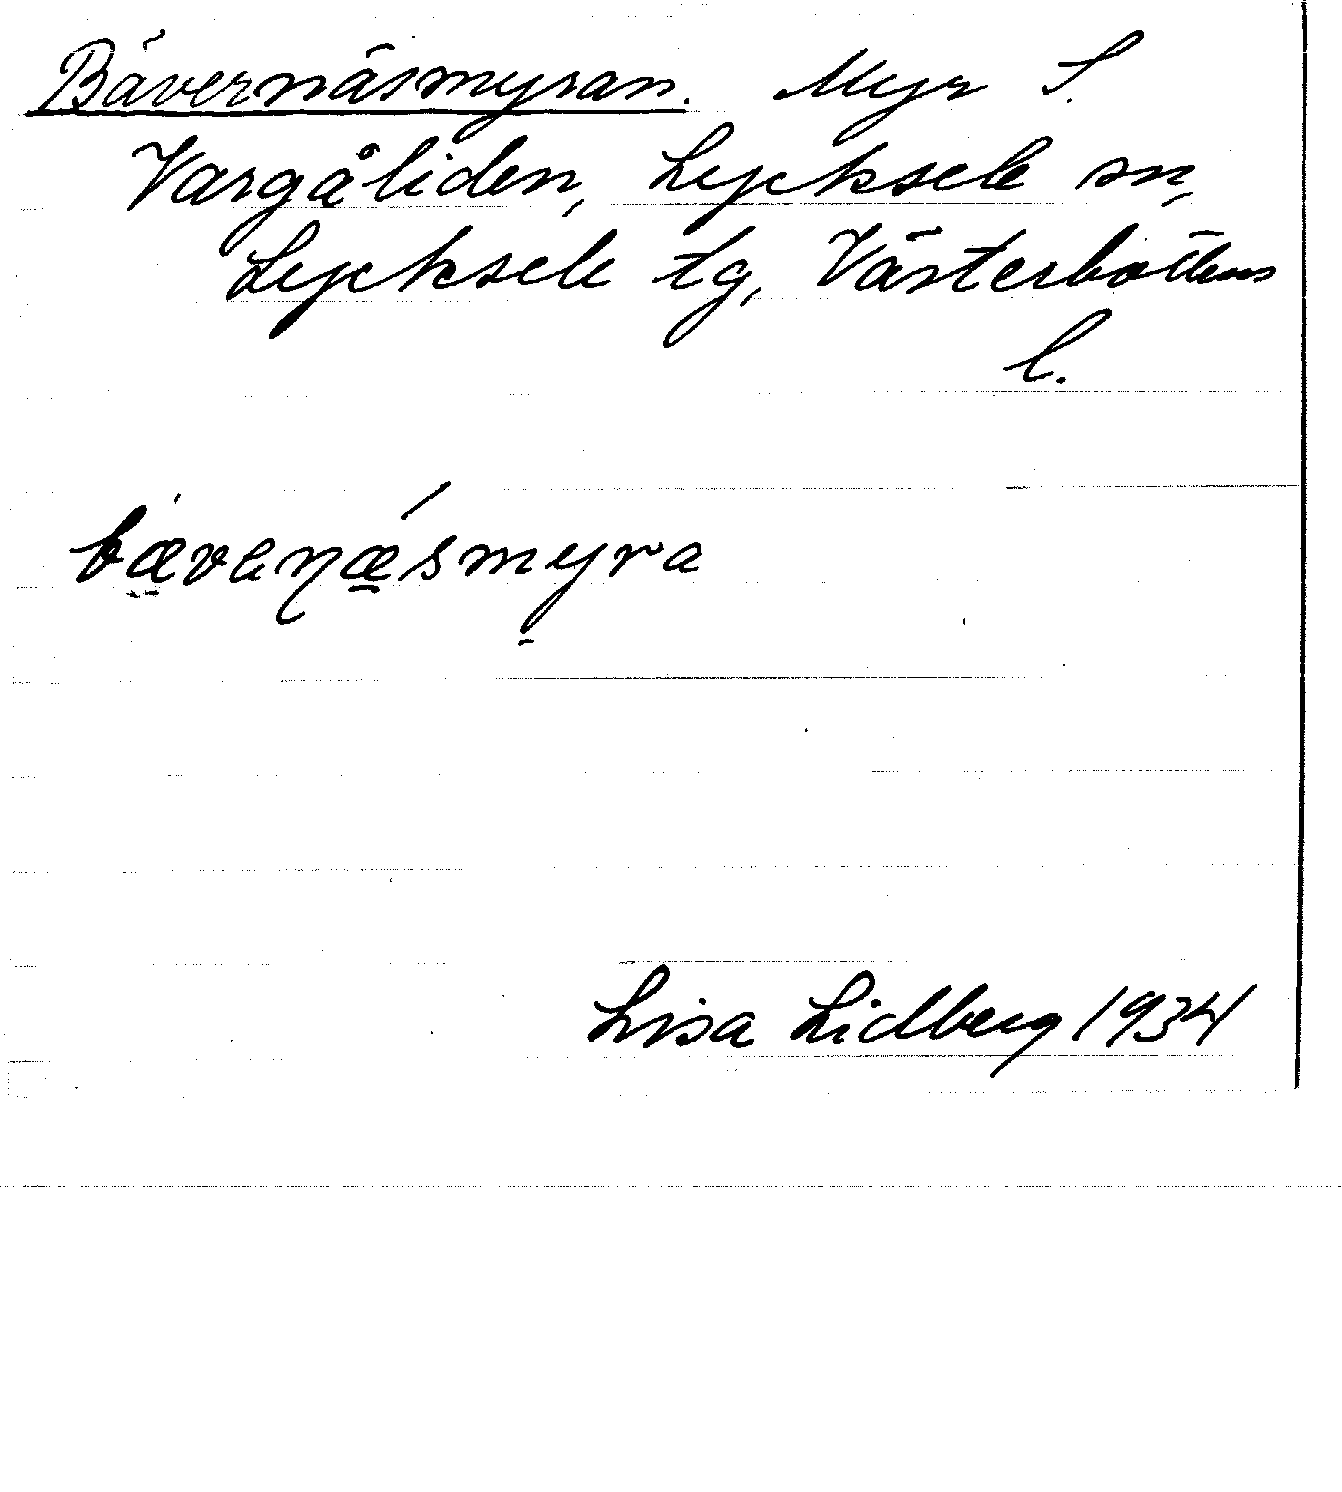 Bävernäsmyran. Myr S.
Vargåliden, Lycksele sn,
Lycksele tg, Västerbottens
l.
bævenæsmyra
Lisa Lidberg 1934